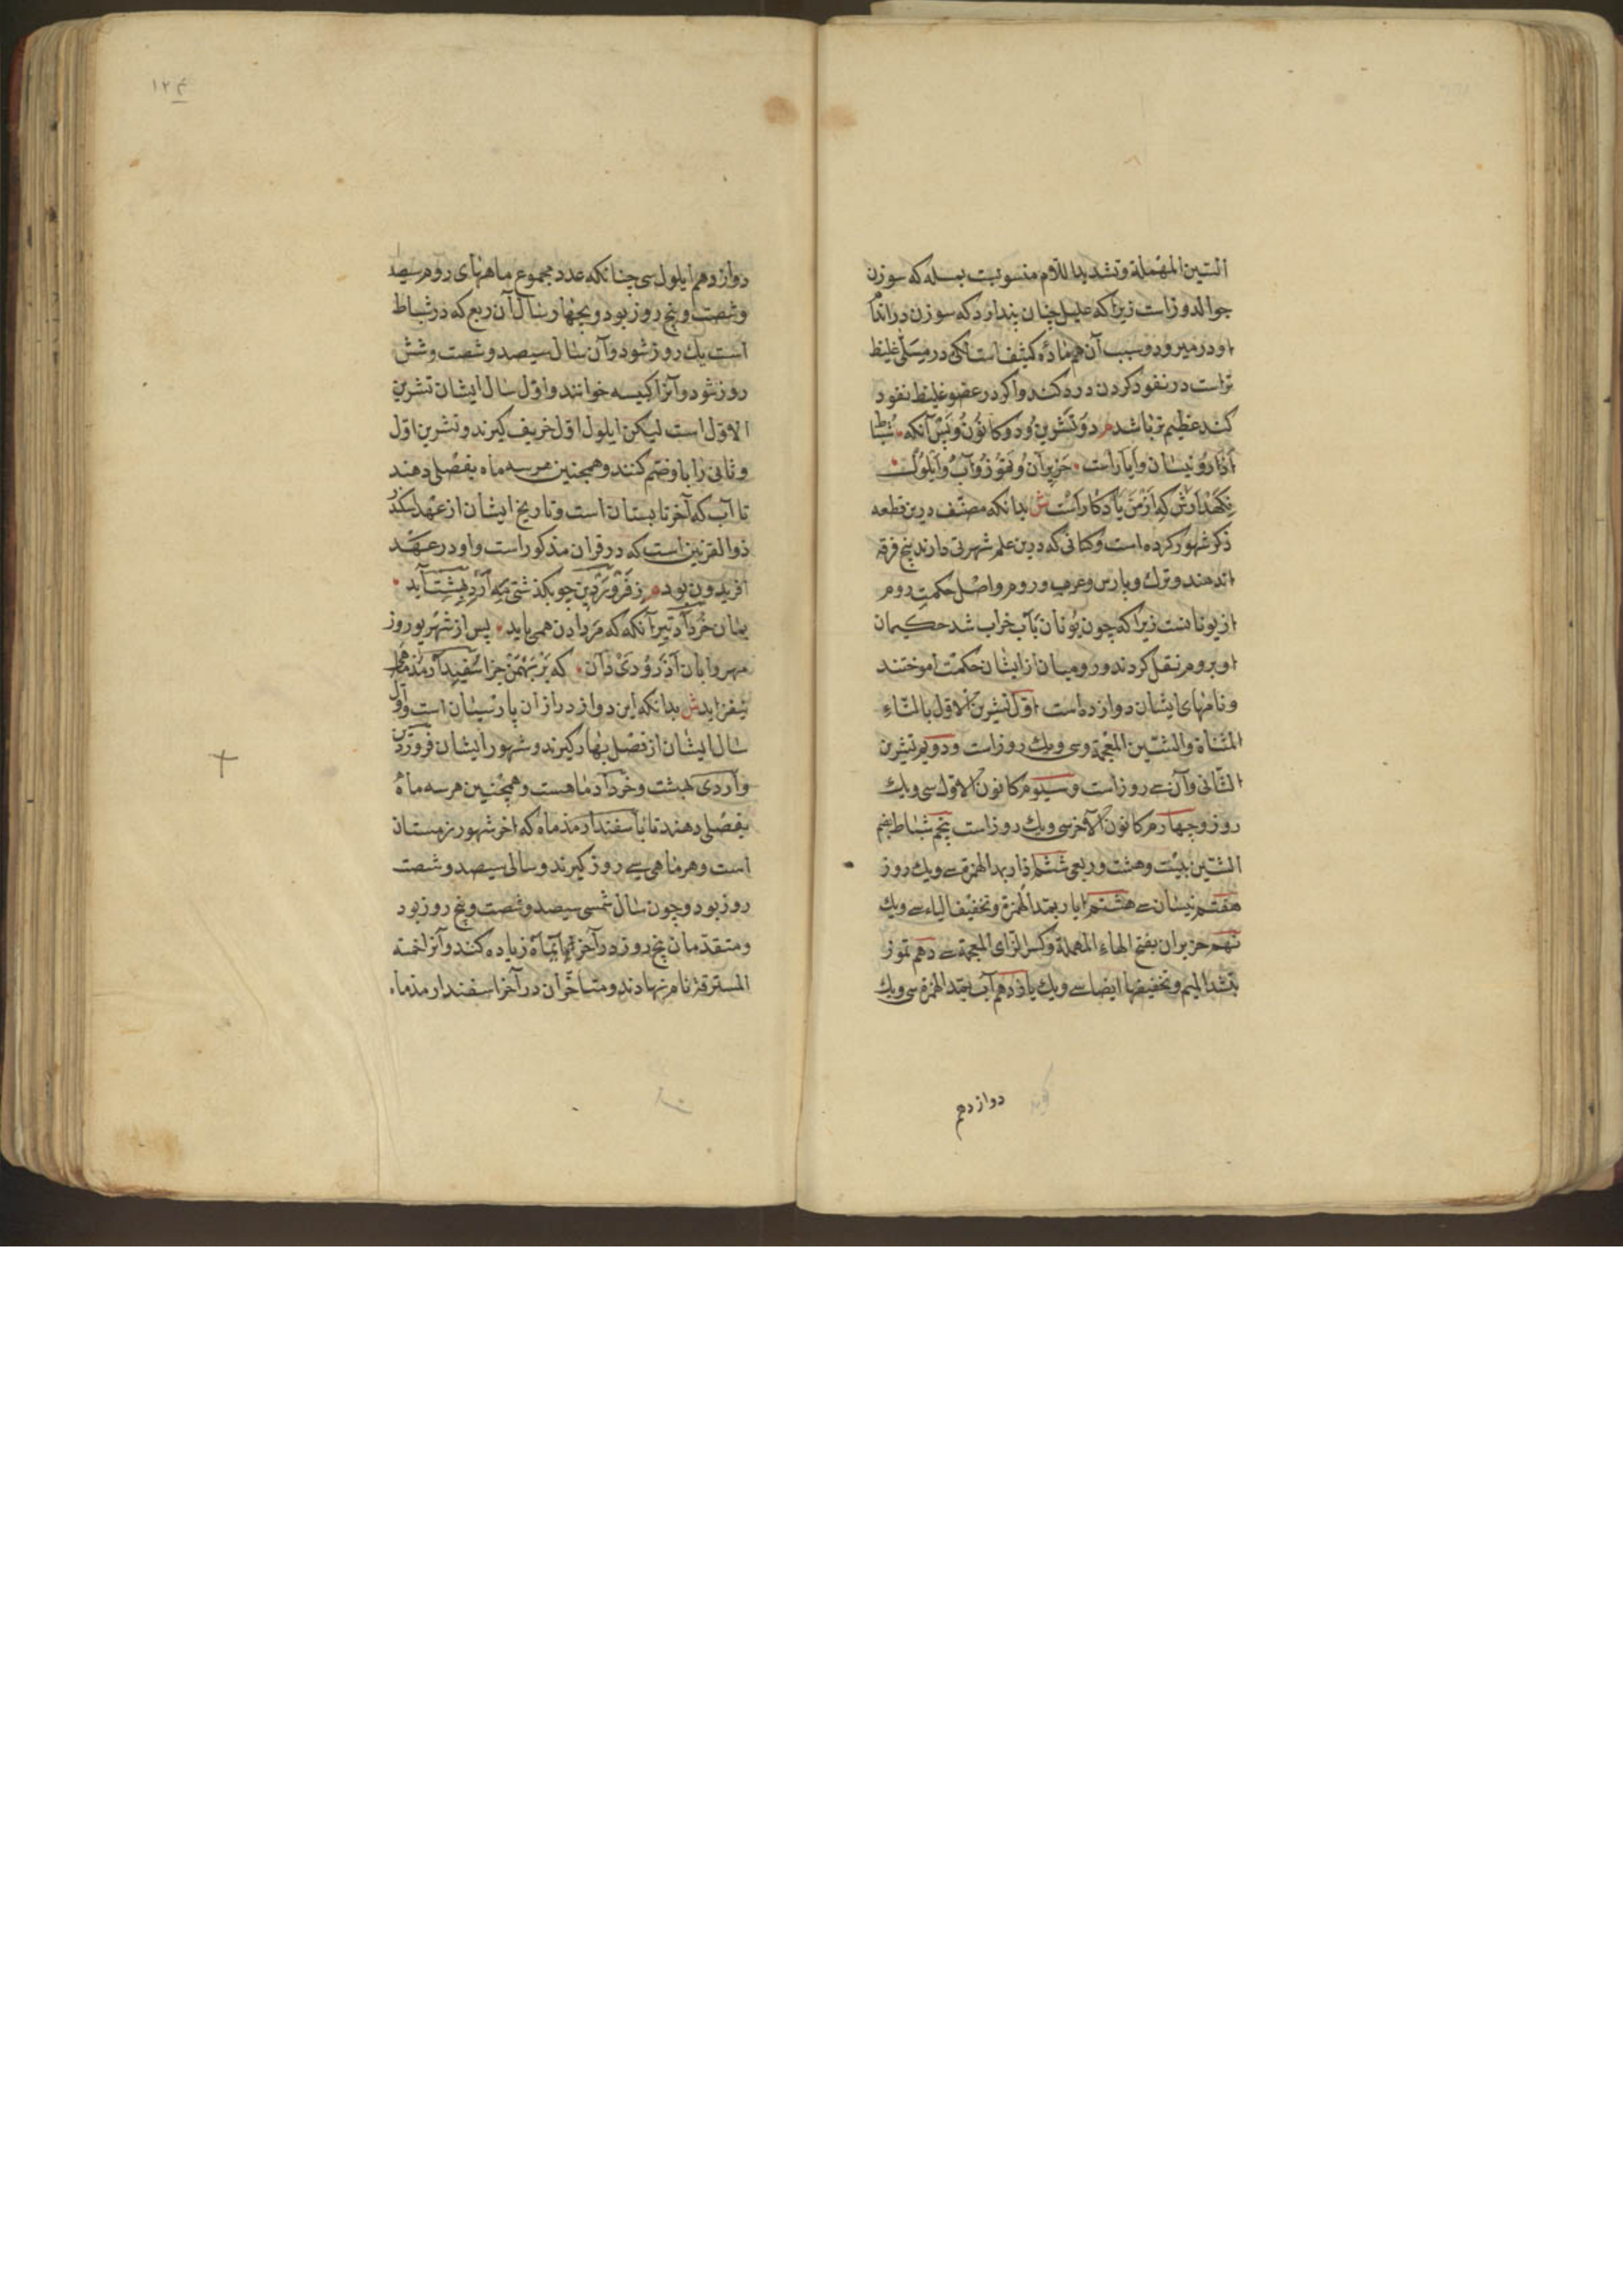 السین المهملة وتشدید اللام منسوبست بمسله که سوزن
جوالدوز است زیرا که علیل چنان پندارد که سوزن در اندام
او در میرود وسبب آن هم ماده کثیف است لکن در مسلی غلیظ
تر است در نفوذ کردن درد کند واکر در عضو غلیظ نفوذ
کند عظیم تر باشد م دو تشرین ودو کانون وپس آنکه شباط
آذار ونیسان وایار است حزیران وتموز وآب وایلول
نکهدارش که از من یادکار است ش بدانکه مصنف درین قطعه
ذکر شهور کرده است وکسانی که درین علم شهرتی دارند پنج فرقه
اند هند وترك وپارس وعرب وروم واصل حکمت روم
از یونانست زیرا که چون یونان بآب خراب شد حکیمان
او بروم نقل کردند ورومیان از ایشان حکمت آموختند
وماههای ایشان دوازده است اول تشرین الاول بالتاء
المثناة والشین المعجمة وسی ویك روز است ودویم تشرین
الثانی وآن سی روز است وسیوم کانون الاول سی ویك
روز وچهارم کانون الآخر سی ویك روز است پنجم شباط بضم
الشین بیست وهشت وربعی ششم اذار بمد الهمزة سی ویك روز
هفتم نیسان سی هشتم ایار بمد الهمزة وتخفیف الیاء سی ویك
نهم حزیران بفتح الهاء المهملة وکسر الزای المعجمة سی دهم تموز
بتشد المیم وتخفیفها ایضا سی ویك یازدهم آب بمد الهمزة سی ویك
دوازدهم
۱۲۴
دوازدهم ایلول سی چنانکه عدد مجموع ماههای روم سیصد
وشصت وپنج روز بود وبچهار سال آن ربع که در شباط
است یك روز شود وآن سال سیصد وشصت وشش
روز شود وآنرا کبیسه خوانند واول سال ایشان تشرین
الاول است لیکن ایلول اول خریف کیرند وتشرین اول
وثانی را با وضم کنند وهمچنین هر سه ماه بفصلی دهند
تا آب که آخر تابستان است وتاریخ ایشان از عهد اسکندر
ذو القرنین است که در قرآن مذکور است واو در عهد
افریدون بود م ز فروردین چو بکذشتی مه اردیبهشت آید
بمان خرداد تیر آنکه که مردادن همی باید پس از شهریور روز
مهر وابان آذر ودی دان که بر بهمن جز اسفیدارمذ ماهی
نیفزاید ش بدانکه این دوازده از ان پارسیان است واول
سال ایشان از فصل بهار کیرند وشهور ایشان فروردین
واردی بهشت وخرداد ماهست وهمچنین هر سه ماه
بفصلی دهند تا باسفندارمذ ماه که آخر شهور زمستان
است وهر ماهی سی روز کیرند وسالی سیصد وشصت
روز بود وچون سال شمسی سیصد وشصت وپنج روز بود
ومتقدمان پنج روز در آخر آبانماه زیاده کنند وآنرا خمسه
المسترقه نام نهادند ومتأخران در آخر اسفندارمذماه